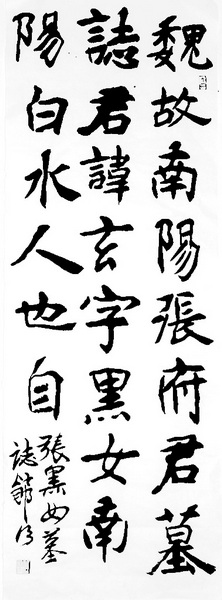 魏故南陽張府君墓
誌君諱玄字黑女南
陽白水人也自
張黑女墓
誌